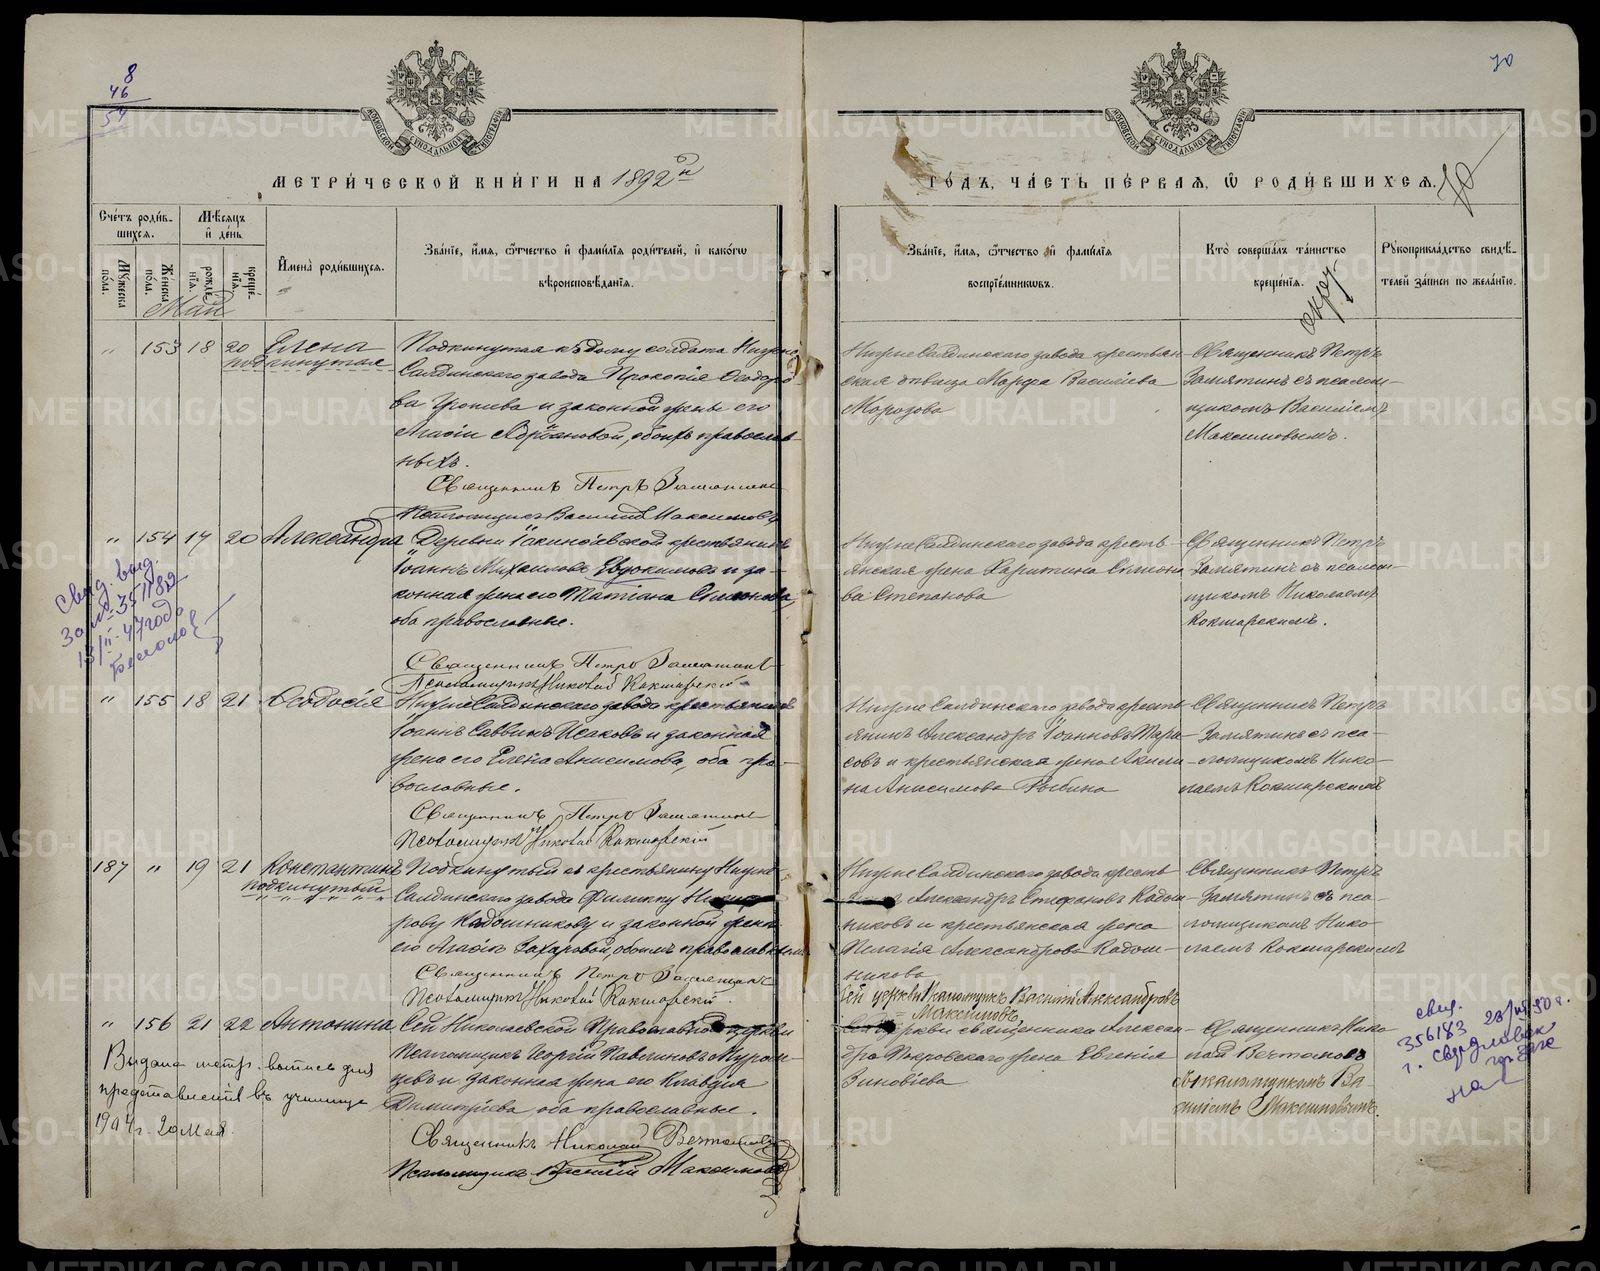 8
46
54
70
МЕТРИ́ЧЕСКОЙ КНИ́ГИ НА 1892й
ГО́ДЪ, ЧА́СТЬ ПЕ́РВАЯ, Ѽ РОДИ́ВШИХСЯ. 70
Сче́тъ роди́в-
шихся.
Мѣ́сяцъ
и҆ де́нь
Мꙋжеска
пола.
Женска
пола.
рожде-
нія.
креще́-
нія.
И҆мена̀ роди́вшихся.
Зва́ніе, и҆́мя, ѻ҆́тчество и҆ фами́лія роди́телей, и҆ како́гѡ
вѣроисповѣ́данія.
Зва́ніе, и҆́мя, ѻ҆́тчество и҆ фами́лія
воспріе́мникѡвъ.
Кто̀ соверша́лъ та́инство
креще́нія.
Рꙋкоприкла́дство свидѣ́-
телей за́писи по жела́нію.
Май
" 153 18 20 Елена
подкинутая
Подкинутая къ дому солдата Нижне
Салдинскаго завода Прокопія Ѳеодоро-
ва и законной жены его
Агафіи обоихъ православ-
ныхъ.
Священникъ Петръ Замятинъ
Псаломщикъ Василій Максимовъ
Нижне Салдинскаго завода крестьян-
ская дѣвица Марфа Василіева
Морозова
Священникъ Петръ
Замятинъ съ псалом-
щикомъ Василіемъ
Максимовымъ.
" 154 17 20 Александра
Деревни крестьянинъ
Іоаннъ Михаиловъ Евдокимовъ и за-
конная жена его Татіана Симонова,
оба православные.
Священникъ Петръ Замятинъ
Псаломщикъ Николай Кокшарскій
Нижне Салдинскаго завода кресть-
янская жена Харитина Симоно-
ва Степанова
Священникъ Петръ
Замятинъ съ псалом-
щикомъ Николаемъ
Кокшарскимъ.
Свид. выд.
за № 351182
13/II-47 года
" 155 18 21 Ѳеодосія
Нижне Салдинскаго завода крестьянинъ
Іоаннъ Саввинъ Исаковъ и законная
жена его Елена Анисимова, оба пра-
вославные.
Священникъ Петръ Замятинъ
Псаломщикъ Николай Кокшарскій
Нижне Салдинскаго завода кресть-
янинъ Александръ Іоанновъ Тара-
совъ и крестьянская жена Акили-
на Анисимова Рыбина
Священникъ Петръ
Замятинъ съ пса-
ломщикомъ Нико-
лаемъ Кокшарскимъ
187 " 19 21 Константинъ
подкинутый
Подкинутый къ крестьянину Нижне
Салдинскаго завода Филиппу
рову Кадошникову и законной женѣ
его Агафіи Захаровой, обоимъ православнымъ
Священникъ Петръ Замятинъ
Псаломщикъ Николай Кокшарскій.
Нижне Салдинскаго завода кресть-
Александръ Стефановъ Кадош-
никовъ и крестьянская жена
Пелагія Александрова Кадош-
никова
Священникъ Петръ
Замятинъ съ пса-
ломщикомъ Нико-
лаемъ Кокшарскимъ
" 156 21 22 Антонина
Сей Николаевской Православной церкви
Псаломщикъ Георгій Павлиновъ Муром-
цевъ и законная жена его Клавдія
Димитріева оба православные.
Священникъ Николай
Псаломщикъ Василій Максимовъ
Сей церкви Псаломщикъ Василій Александровъ
Максимовъ,
церкви священника Алексан-
дра Покровскаго жена Евгенія
Зиновіева
Священникъ Нико-
лай
съ псаломщикомъ Ва-
силіемъ Максимовымъ.
Выдана метр. выпись для
представленія въ училище
1904 г. 20 мая.
свид.
356183 23/VIII 50 г.
г. Свердловск
METRIKI.GASO-URAL.RU